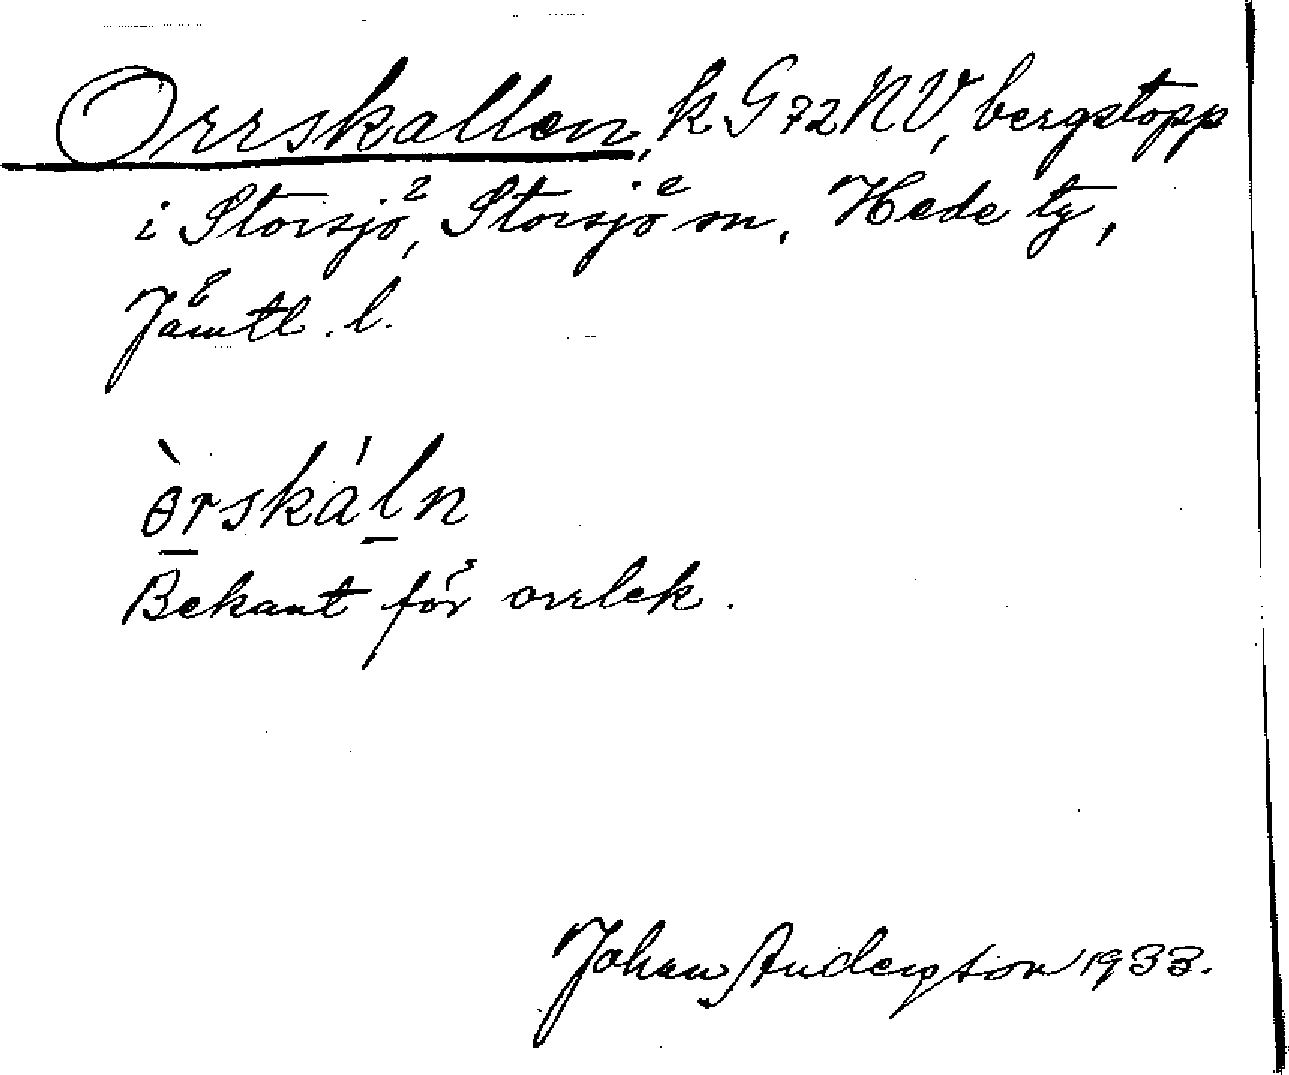 Orrskallen, k G 72 NV, bergstopp
i Storsjö, Storsjö sn, Hede tg,
Jämtl. l.
ɵ̀r̠ská́l̠n
Bekant för orrlek.
Johan Anderson 1933.